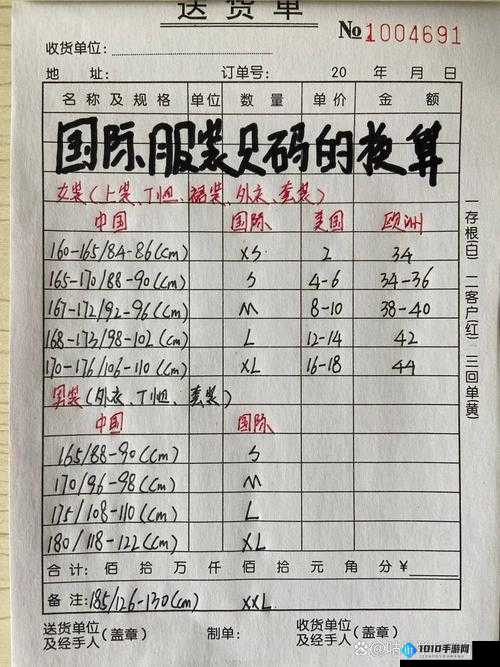 送货单
№1004691
收货单位:
地 址: 订单号: 20 年 月 日
名称及规格 单位 数量 单价 金额
国际服装尺码的换算
女装(上装、T恤、裙装、外衣、套装)
中国 国际 美国 欧洲
160-165/84-86(cm) XS 2 34
165-170/88-90(cm) S 4-6 34-36
167-172/92-96(cm) M 8-10 38-40
168-173/98-102(cm) L 12-14 42
170-176/106-110(cm) XL 16-18 44
男装(外衣、T恤、套装)
中国 国际
165/88-90(cm) S
170/96-98(cm) M
175/108-110(cm) L
180/118-122(cm) XL
合计: 佰 拾 万 仟 佰 拾 元 角 分 ¥
备注: 185/126-130(cm) XXL
送货单位及经手人(盖章) 制单: 收货单位及经手人
一存根(白) 二客户红) 三回单(黄)
1010手游网